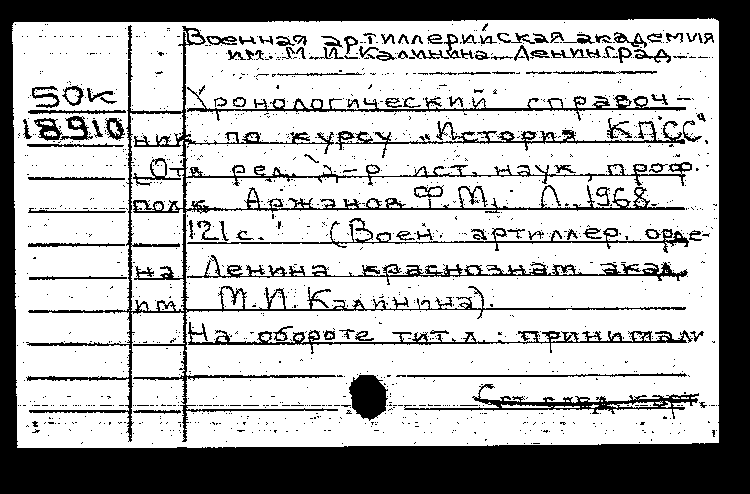 Военная артиллерийская академия
им. М.И. Калинина. Ленинград
50к
18910
Хронологический справоч-
ник по курсу „История КПСС".
[Отв. ред. д-р ист. наук, проф.
полк. Аржанов Ф.М.]. Л., 1968.
121 с. (Воен. артиллер. орде-
на Ленина краснознам. акад.
им. М.И. Калинина).
На обороте тит. л.: принимали
См. след. карт.